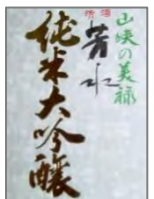 山峡の美禄
清酒
芳水
純米大吟醸